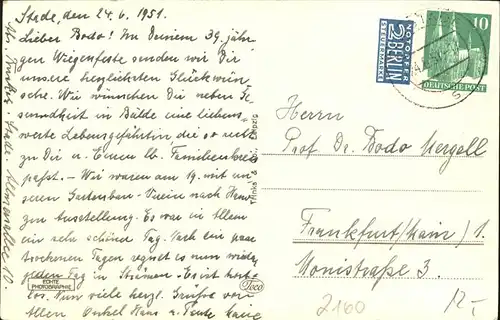 Stade, den 24.6.1951.
Lieber Bodo! Zu Deinem 39. jähri-
gen Wiegenfeste senden wir Dir
unsere herzlichsten Glückwün-
sche. Wir wünschen Dir neben Ge-
sundheit in Bälde eine liebens-
werte Lebensgefährtin die so recht
zu Dir u. Euren lb. Familienkreis
passt. - Wir waren am 19. mit un-
seren Gartenbau-Verein nach Hann.
zur Ausstellung. Es war in Allem
ein sehr schöner Tag. Nach ein paar
trockenen Tagen regnet es nun wieder
jeden Tag in Strömen.
los. Nun viele herzl. Grüsse von
allen Onkel Hans u. Tante
ECHTE
PHOTOGRAPHIE
Stade
10
Leipzig
NOTOPFER
2 BERLIN
STEUERMARKE
10
DEUTSCHE POST
Herrn
Prof. Dr. Bodo Mergell
Frankfurt/Main/1.
Monistraße 3.
2160
12,-